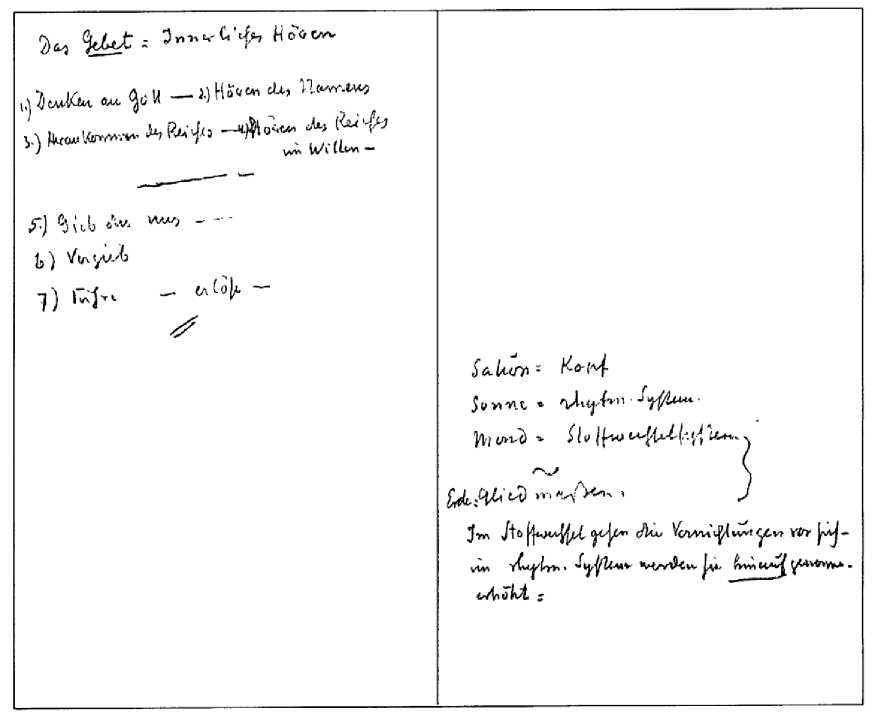 Das Gebet = Innerliches Hören
1.) Denken an Gott — 2.) Hören des Namens
3.) Herankommen des Reiches — 4.) Hören des Reiches
im Willen –
5.) Gieb uns – – –
6) Vergieb
7) Führe — erlöse —
Saturn = Kopf
Sonne = rhythm. System.
Mond = Stoffwechselsystem
Erde: Gliedmaßen.
Im Stoffwechsel gehen die Vernichtungen vor sich –
im rhythm. System werden sie hinauf genomme.
erhöht =